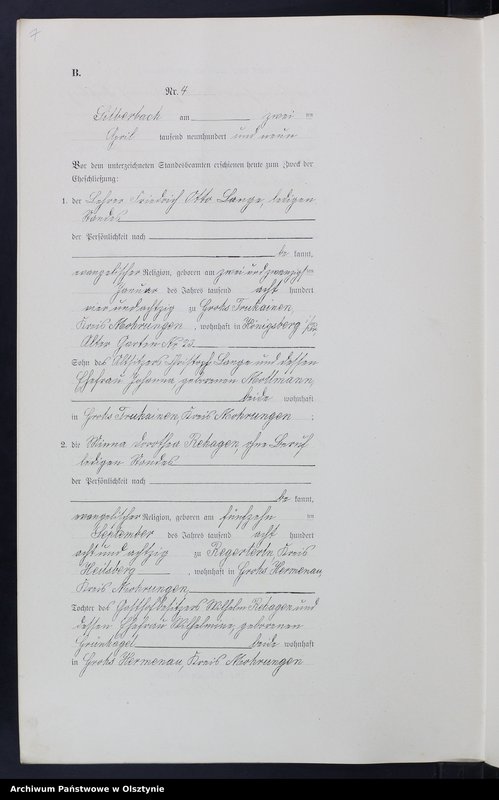 7
B.
Nr. 4
Silberbach am zwei ten
April tausend neunhundert und neun
Vor dem unterzeichneten Standesbeamten erschienen heute zum Zweck der
Eheschließung:
1. der Lehrer Friedrich Otto Lange, ledigen
Standes
der Persönlichkeit nach
be kannt,
evangelischer Religion, geboren am zwei und zwanzigsten
Januar des Jahres tausend acht hundert
vier und achtzig zu Groß
Kreis Mohrungen, wohnhaft in Königsberg i/Pr.
Alter Garten Nr
Sohn des Altsitzers Christoph Lange und dessen
Ehefrau Johanna, geborenen
beide wohnhaft
in Groß Kreis Mohrungen ;
2. die Minna Dorothea Rehagen, ohne Beruf
ledigen Standes
der Persönlichkeit nach
be kannt,
evangelischer Religion, geboren am fünfzehn ten
September des Jahres tausend acht hundert
acht und achtzig zu Regerteln, Kreis
Heilsberg, wohnhaft in Groß Hermenau,
Kreis Mohrungen,
Tochter des Wilhelm Rehagen und
dessen Ehefrau Wilhelmine, geborenen
Grünhagel beide wohnhaft
in Groß Hermenau, Kreis Mohrungen
Archiwum Państwowe w Olsztynie